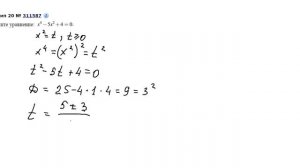 20 № 311587
уравнение x⁴ − 5x² + 4 = 0.
x² = t, t ⩾ 0
x⁴ = (x²)² = t²
t² − 5t + 4 = 0
D = 25 − 4 · 1 · 4 = 9 = 3²
t = 5 ± 3